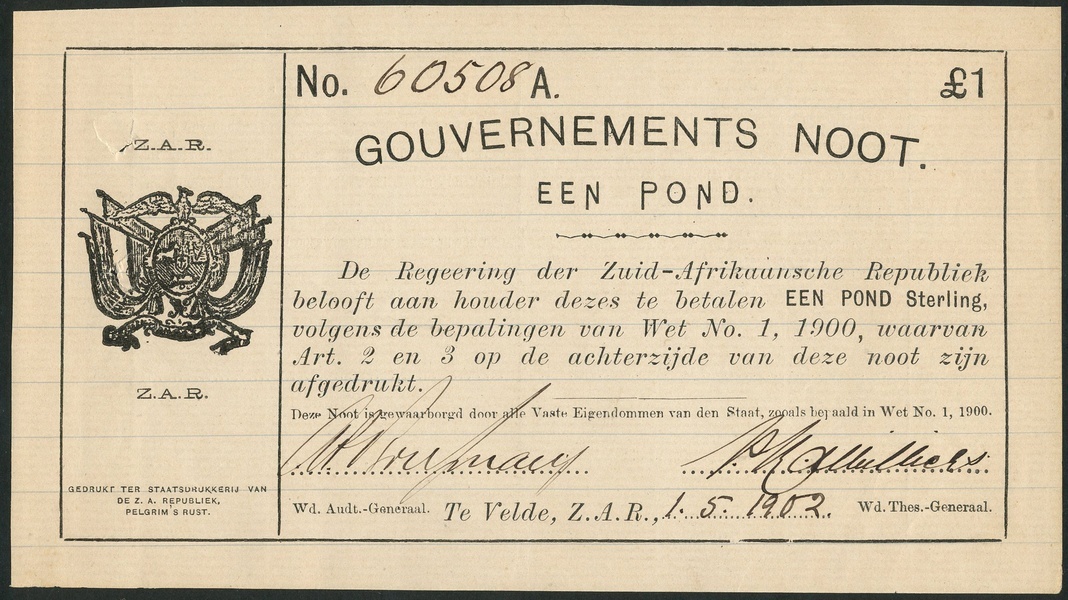 No. 60508 A. £1
GOUVERNEMENTS NOOT.
EEN POND.
De Regeering der Zuid-Afrikaansche Republiek
belooft aan houder dezes te betalen EEN POND Sterling,
volgens de bepalingen van Wet No. 1, 1900, waarvan
Art. 2 en 3 op de achterzijde van deze noot zijn
afgedrukt.
Deze Noot is gewaarborgd door alle Vaste Eigendommen van den Staat, zooals bepaald in Wet No. 1, 1900.
Wd. Audt.-Generaal. Te Velde, Z.A.R., 1. 5. 1902. Wd. Thes.-Generaal.
Z.A.R.
Z.A.R.
GEDRUKT TER STAATSDRUKKERIJ VAN
DE Z. A. REPUBLIEK,
PELGRIM'S RUST.